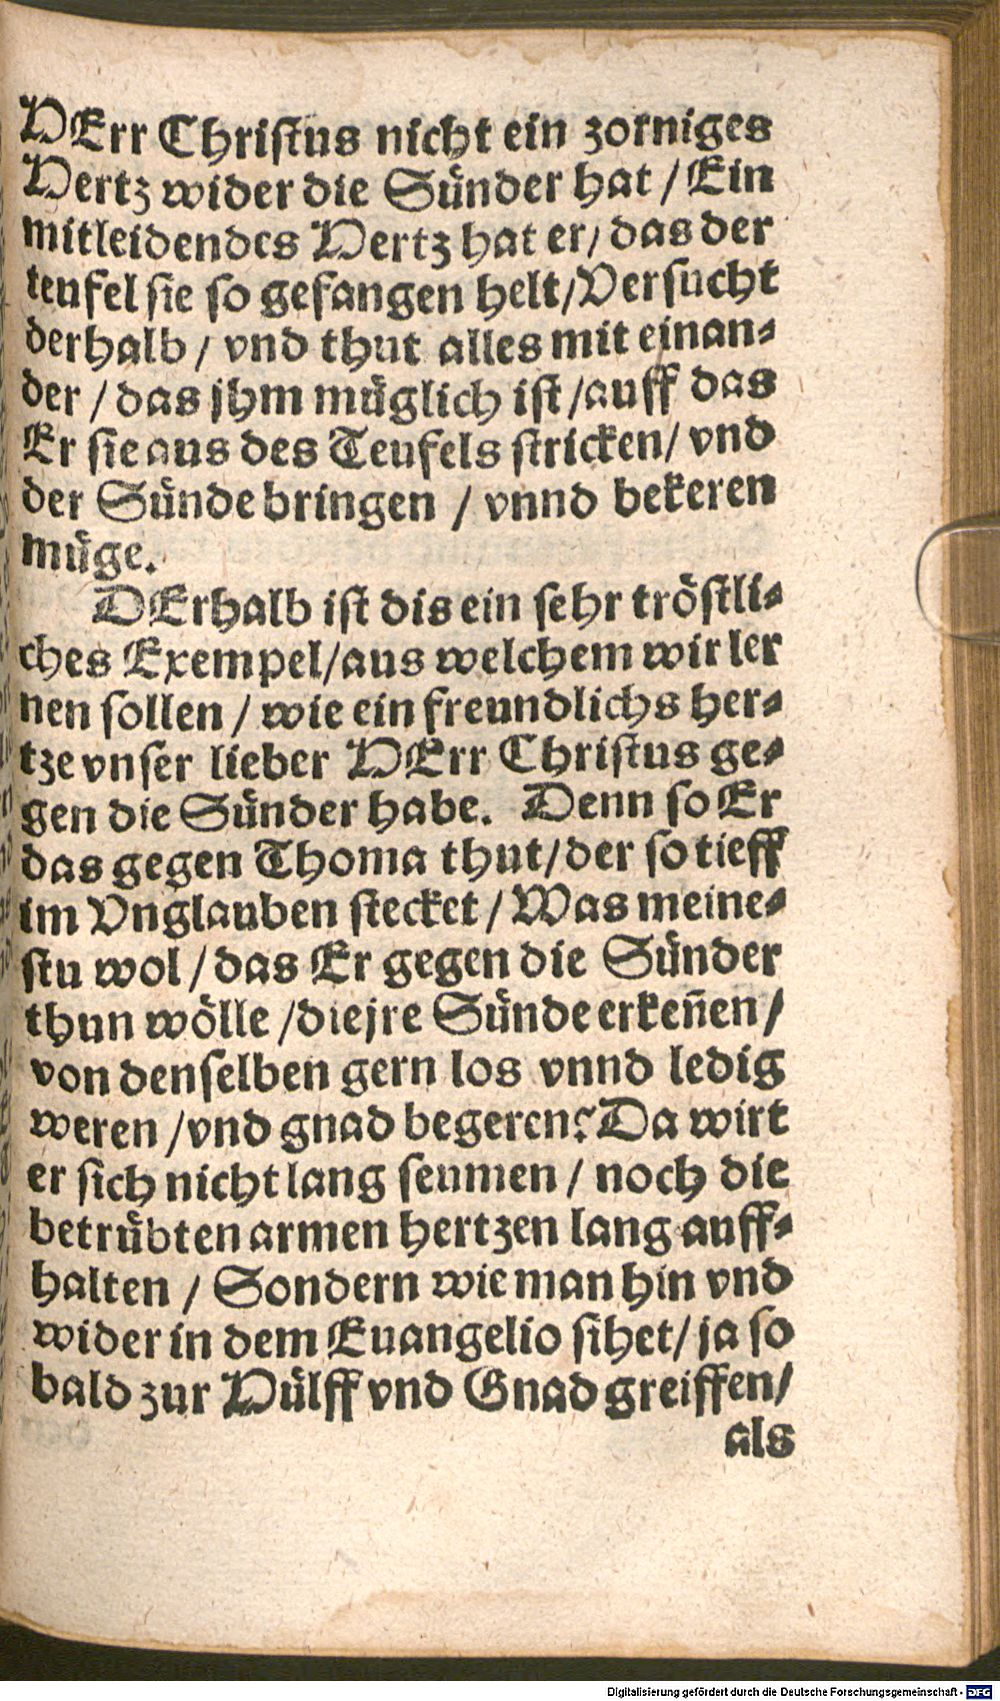 HErr Christus nicht ein zorniges
Hertz wider die Sünder hat / Ein
mitleidendes Hertz hat er / das der
teufel sie so gefangen helt / Versucht
derhalb / vnd thut alles mit einan-
der / das jhm müglich ist / auff das
Er sie aus des Teufels stricken / vnd
der Sünde bringen / vnnd bekeren
müge.
DErhalb ist dis ein sehr tröstli-
ches Exempel / aus welchem wir ler
nen sollen / wie ein freundlichs her-
tze vnser lieber HErr Christus ge-
gen die Sünder habe. Denn so Er
das gegen Thoma thut / der so tieff
im Vnglauben stecket / Was meine-
stu wol / das Er gegen die Sünder
thun wölle / die jre Sünde erkeñen /
von denselben gern los vnnd ledig
weren / vnd gnad begeren? Da wirt
er sich nicht lang seumen / noch die
betrübten armen hertzen lang auff-
halten / Sondern wie man hin vnd
wider in dem Euangelio sihet / ja so
bald zur Hülff vnd Gnad greiffen /
als
Digitalisierung gefördert durch die Deutsche Forschungsgemeinschaft - DFG